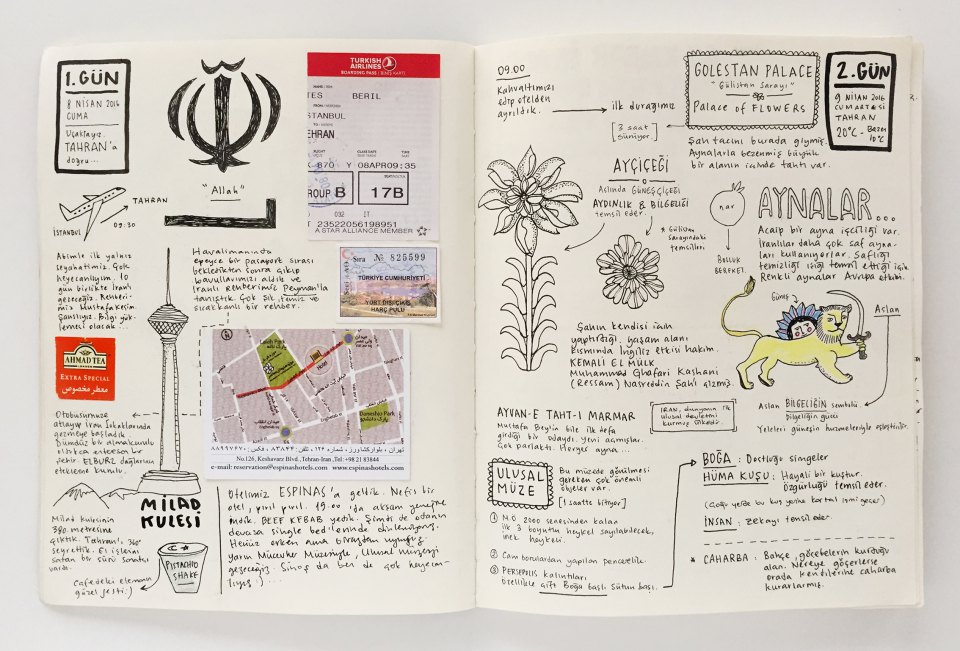 1. GÜN
8 NİSAN 2016
CUMA
Uçaktayız.
TAHRAN'a
doğru...
"Allah"
TURKISH
AIRLINES
BOARDING PASS | BİNİŞ KARTI
TES BERIL
STANBUL
EHRAN
K 870 Y 08APR09:35
ROUP B
17B
032 IT
2352205619895 1
A STAR ALLIANCE MEMBER
TAHRAN
İSTANBUL
09:30
Abimle ilk yalnız
seyahatimiz. Çok
heyecanlıyım. 10
gün birlikte İran'ı
gezeceğiz. Rehberi-
miz Mustafa Keşim.
Şanslıyız. Bilgi yük-
lemesi olacak...
Havalimanında
epeyce bir pasaport sırası
bekledikten sonra çıkıp
bavullarımızı aldık ve
İranlı rehberimiz Peyman'la
tanıştık. Çok şık, temiz ve
sıcakkanlı bir rehber.
Sıra № 825599
TÜRKİYE CUMHURİYETİ
YURT DIŞI ÇIKIŞ
HARÇ PULU
AHMAD TEA
LONDON
EXTRA SPECIAL
معطر مخصوص
Laleh Park
پارک لاله
Hotel
Daneshjo Park
پارک دانشجو
تهران ، بلوار کشاورز ، شماره ۱۲۶ ، تلفن : ۸۳۸۴۴ ، فکس : ۸۸۹۹۶۷۰
No.126, Keshavarz Blvd. Tehran-Iran , Tel:+98 21 83844
e-mail: reservation@espinashotels.com www.espinashotels.com
Otobüsümüze
atlayıp İran sokaklarında
gezmeye başladık.
Dümdüz bir almakurulu
oldukça enteresan bir
şehir. ELBURZ dağlarının
eteklerine kurulu.
MİLAD
KULESİ
Milad kulesinin
380. metresine
çıktık. Tahran'ı 360°
seyrettik. El işlerini
satan bir sürü sanatçı
vardı.
PISTACHIO
SHAKE
Cafedeki elemanın
güzel jesti :)
Otelimiz ESPINAS'a geldik. Nefis bir
otel, pırıl pırıl. 19.00'da akşam yemeğine
indik. BEEF KEBAB yedik. Şimdi de odanın
devasa single bed'lerinde dinleniyoruz.
Henüz erken ama birazdan uyuyup
yarın Mücevher Müzesiyle, Ulusal müzeyi
gezeceğiz. Simaş da ben de çok heyecan-
lıyız :)...
09.00
Kahvaltımızı
edip otelden
ayrıldık.
ilk durağımız
[3 saat
sürüyor.]
GOLESTAN PALACE
"Gülistan Sarayı"
Palace of FLOWERS
2. GÜN
9 NİSAN 2016
CUMARTESİ
TAHRAN
20°C - Bazen
10°C
Şah tacını burada giymiş.
Aynalarla bezenmiş büyük
bir alanın içinde tahtı var.
AYÇİÇEĞİ
Aslında GÜNEŞ ÇİÇEĞİ
AYDINLIK & BİLGELİĞİ
temsil eder.
* Gülistan
Sarayındaki
temsilleri
nar
BOLLUK
BEREKET.
AYNALAR...
Acaip bir ayna işçiliği var.
İranlılar daha çok saf ayna-
ları kullanıyorlar. Saflığı
temizliği ışığı temsil ettiği için
Renkli aynalar Avrupa etkisi.
Güneş
Aslan
Aslan BİLGELİĞİN sembolü
Bilgeliğin gücü
Yeleleri güneşin huzmeleriyle eşleştirilir.
Şahın kendisi için
yaptırdığı, yaşam alanı
kısmında İngiliz etkisi hakim.
KEMALİ EL MÜLK
Muhammad Ghafari Kashani
(Ressam) Nasreddin Şah'ı çizmiş.
AYVAN-E TAHT-I MARMAR
Mustafa Bey'in bile ilk defa
girdiği bir odaydı. Yeni açmışlar.
Çok parlaktı. Herşey ayna...
İRAN, dünyanın ilk
ulusal devletini
kurmuş ülkedir.
ULUSAL
MÜZE
Bu müzede görülmesi
gereken çok önemli
objeler var.
[1 saatte bitiyor]
① M.Ö 2000 senesinden kalan
ilk 3 boyutlu heykel sayılabilecek,
inek heykeli.
② Cam borulardan yapılan pencerelik.
③ PERSEPOLİS kalıntıları
özellikle çift Boğa başlı sütun başı.
BOĞA: Dostluğu simgeler
HÜMA KUŞU: Hayali bir kuştur.
Özgürlüğü temsil eder.
(Çoğu yerde bu kuş yerine kartal ismi geçer)
İNSAN: zekayı temsil eder
* CAHARBA: Bahçe, göçebelerin kurduğu
alan. Nereye göçerlerse
orada kendilerine caharba
kurarlarmış.